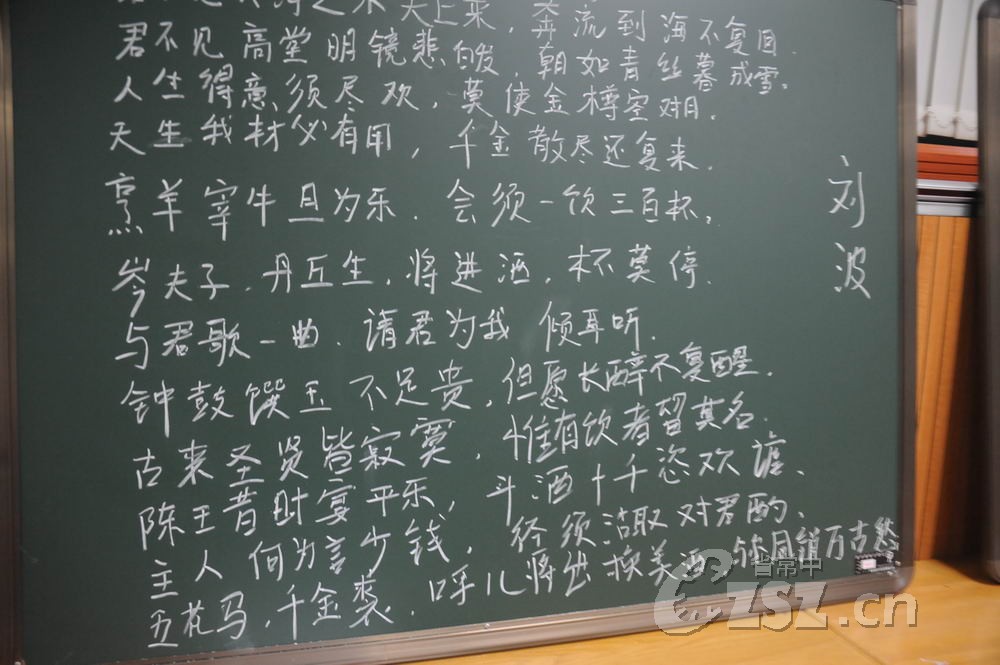 天上来，奔流到海不复回.
君不见高堂明镜悲白发，朝如青丝暮成雪。
人生得意须尽欢，莫使金樽空对月.
天生我材必有用，千金散尽还复来.
烹羊宰牛且为乐.会须一饮三百杯。
岑夫子.丹丘生，将进酒，杯莫停.
与君歌一曲.请君为我倾耳听.
钟鼓馔玉不足贵，但愿长醉不复醒.
古来圣贤皆寂寞，惟有饮者留其名.
陈王昔时宴平乐，斗酒十千恣欢谑、
主人何为言少钱，径须沽取对君酌、
五花马，千金裘，呼儿将出换美酒，与尔同销万古愁
刘波
晋常中
ZSZ.cn